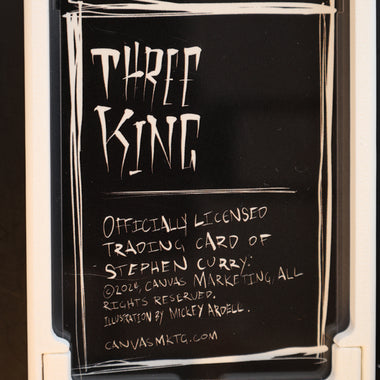 THREE
KING
OFFICIALLY LICENSED
TRADING CARD OF
STEPHEN CURRY.
©2024, CANVAS MARKETING, ALL
RIGHTS RESERVED.
ILLUSTRATION BY MICKEY ARDELL.
CANVASMKTG.COM